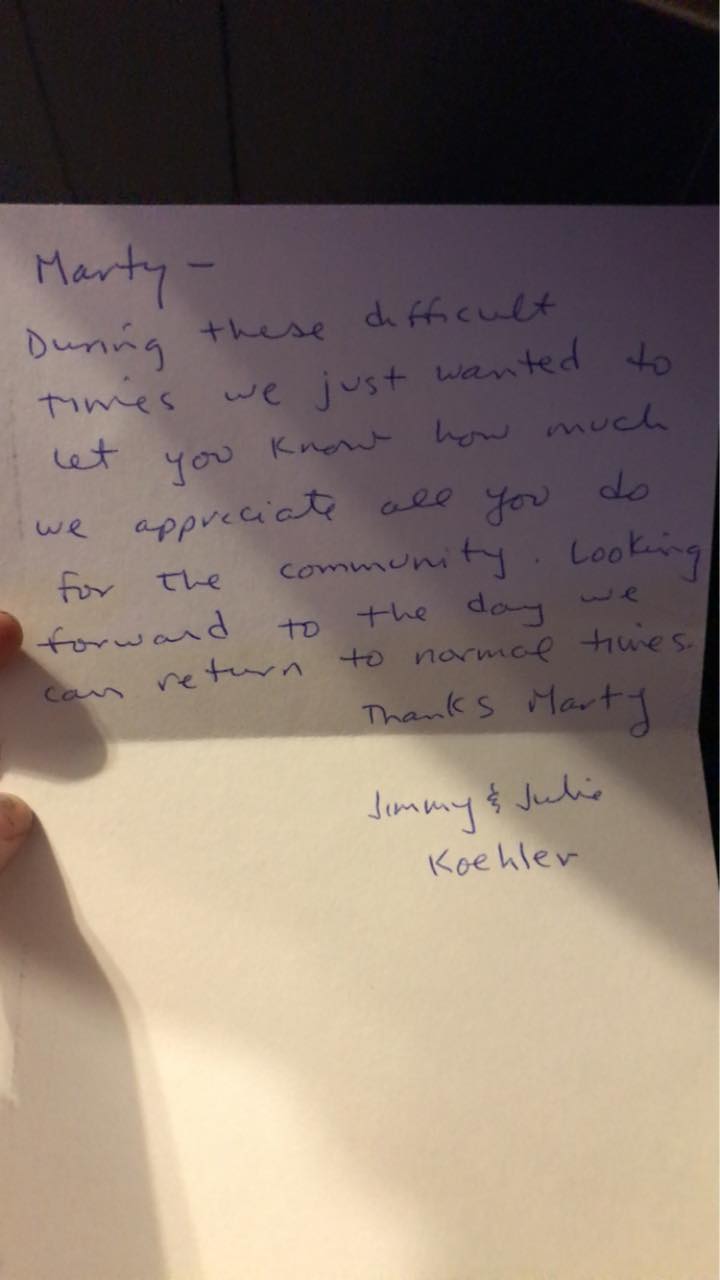 Marty -
During these difficult
times we just wanted to
let you know how much
we appreciate all you do
for the community. Looking
forward to the day we
can return to normal times.
Thanks Marty
Jimmy & Julie
Koehler